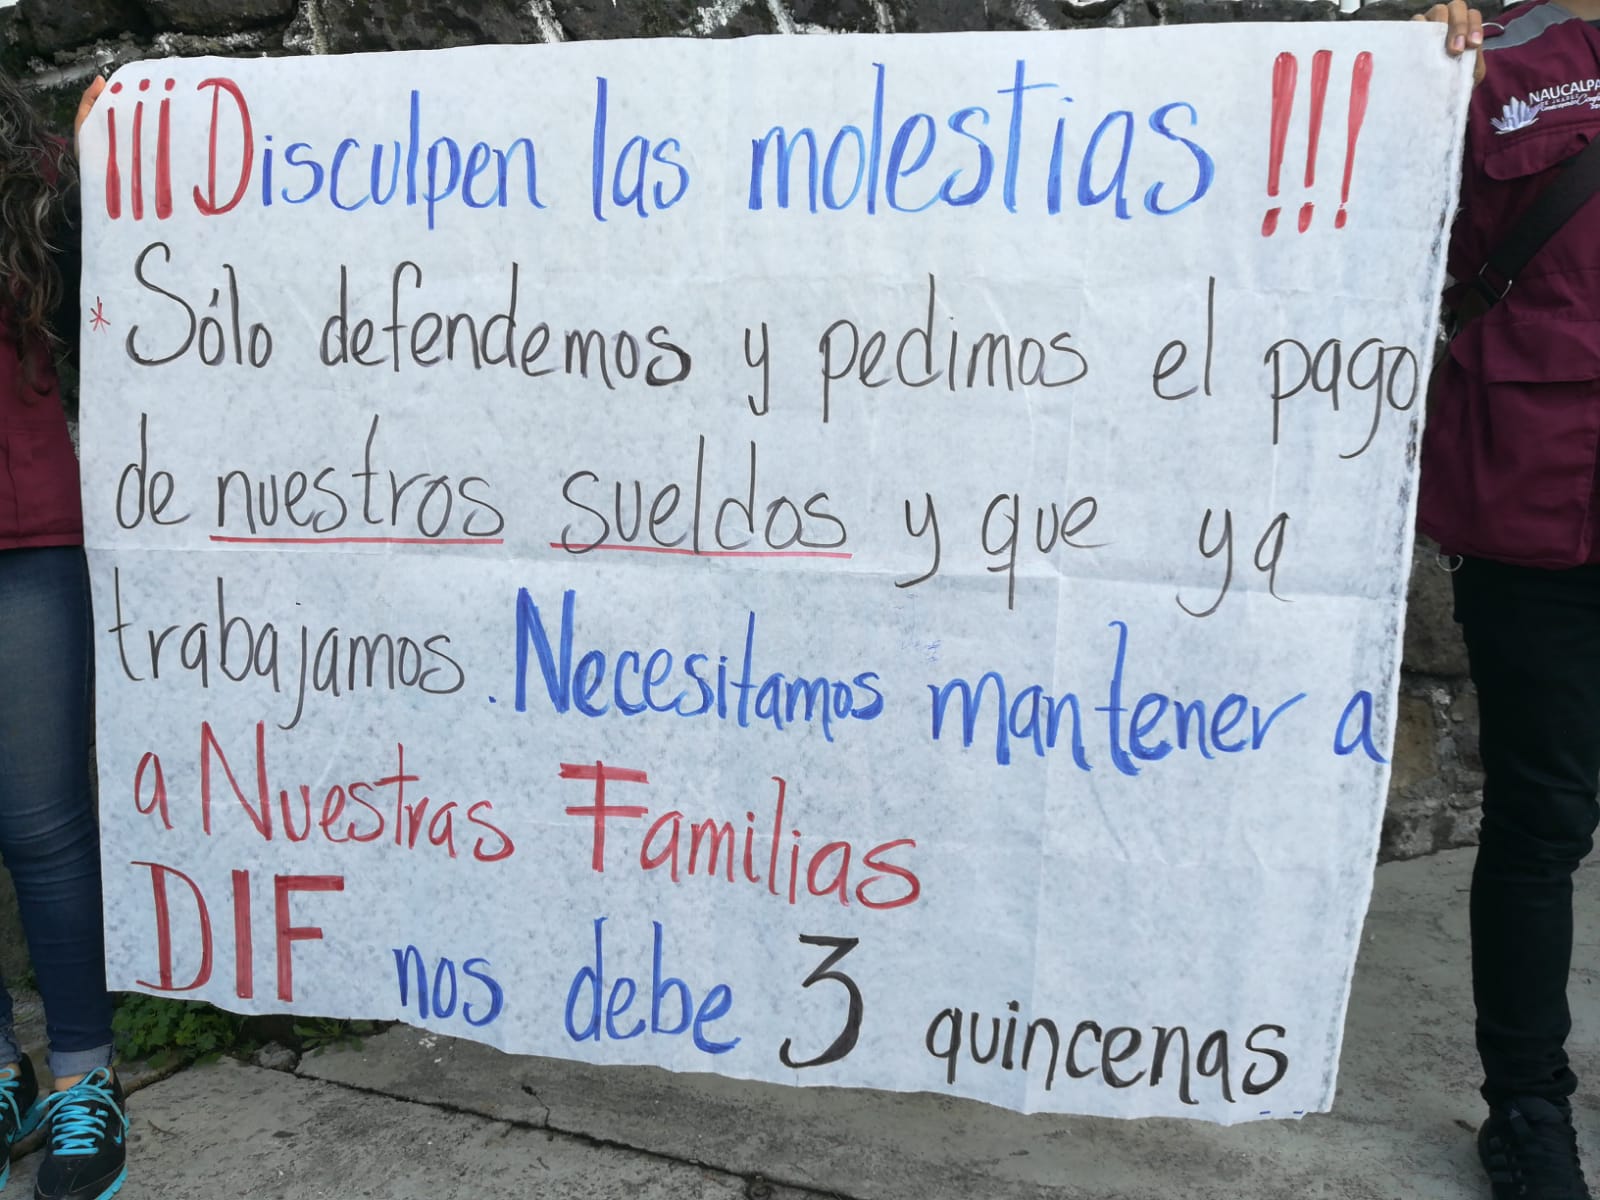 ¡¡¡Disculpen las molestias!!!
* Sólo defendemos y pedimos el pago
de nuestros sueldos y que ya
trabajamos. Necesitamos mantener a
a Nuestras Familias
DIF nos debe 3 quincenas
NAUCALPA